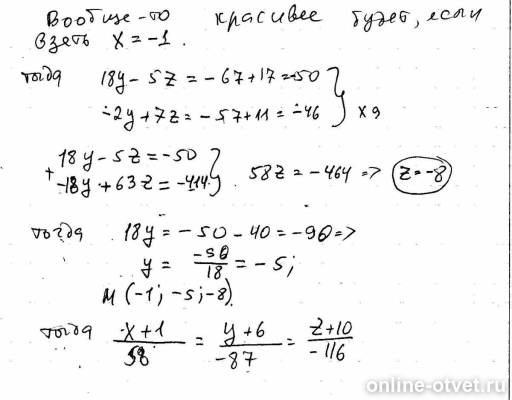 Вообще-то красивее будет, если
взять x = -1.
тогда 18y - 5z = -67+17=-50
-2y+7z = -57+11 = -46 } x 9
+ 18y - 5z = -50
-18y + 63z = -414 } 58z = -464 => z=-8
тогда 18y = -50 - 40 = -90 =>
y = -90/18 = -5;
M (-1; -5; -8)
тогда x+1/58 = y+6/-87 = z+10/-116
online-otvet.ru